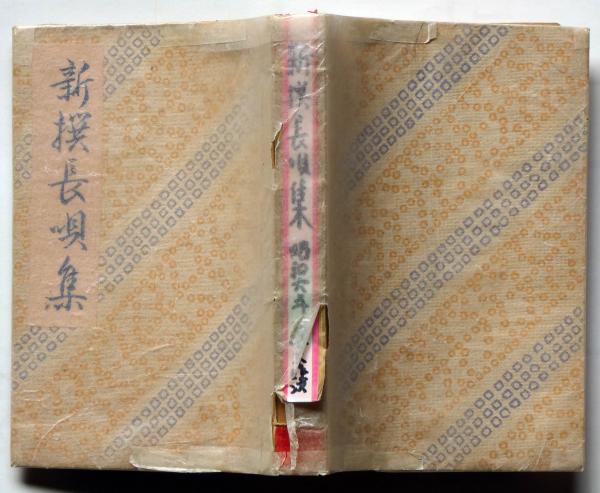 新撰長唄集
新撰長唄集 昭和六年